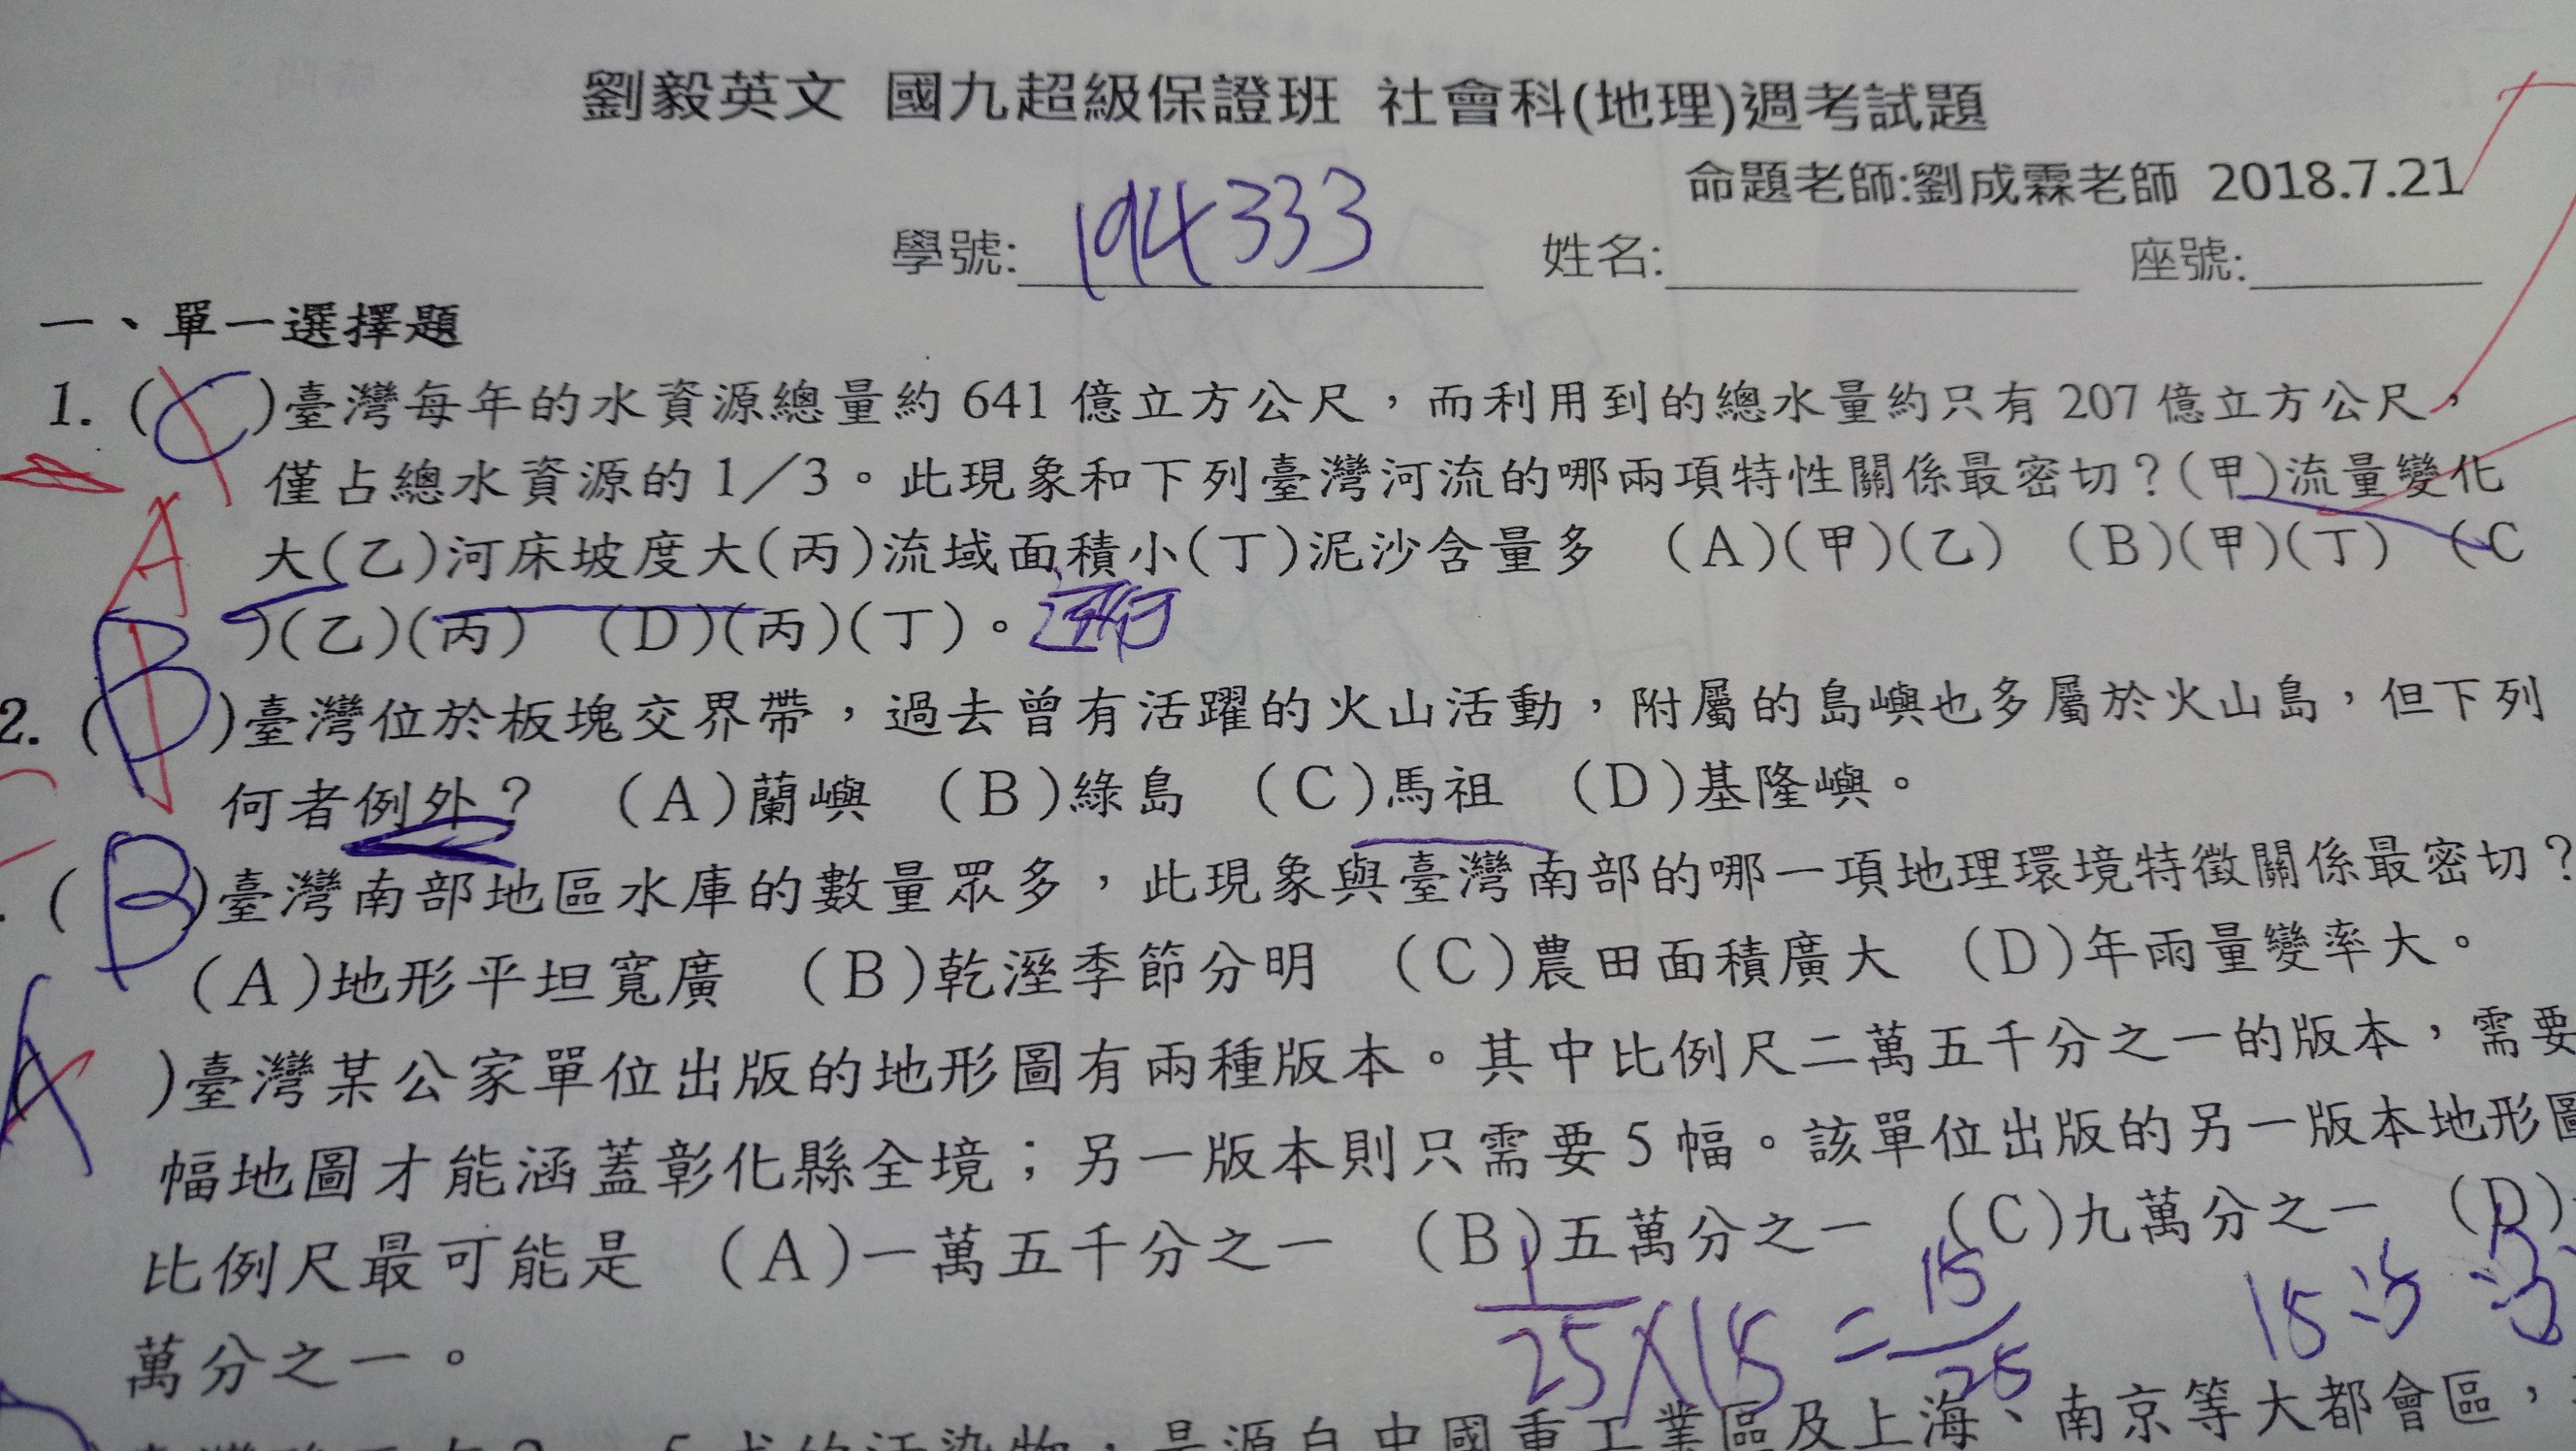 劉毅英文 國九超級保證班 社會科(地理)週考試題
命題老師:劉成霖老師 2018.7.21
學號: 194333 姓名: 座號:
一、單一選擇題
1. (C)臺灣每年的水資源總量約 641 億立方公尺，而利用到的總水量約只有 207 億立方公尺，
僅占總水資源的 1／3。此現象和下列臺灣河流的哪兩項特性關係最密切？(甲)流量變化
A
大(乙)河床坡度大(丙)流域面積小(丁)泥沙含量多 (A)(甲)(乙) (B)(甲)(丁) (C
)(乙)(丙) (D)(丙)(丁)。
2. (B)臺灣位於板塊交界帶，過去曾有活躍的火山活動，附屬的島嶼也多屬於火山島，但下列
何者例外？ (A)蘭嶼 (B)綠島 (C)馬祖 (D)基隆嶼。
. (B)臺灣南部地區水庫的數量眾多，此現象與臺灣南部的哪一項地理環境特徵關係最密切？
(A)地形平坦寬廣 (B)乾溼季節分明 (C)農田面積廣大 (D)年雨量變率大。
A )臺灣某公家單位出版的地形圖有兩種版本。其中比例尺二萬五千分之一的版本，需要
幅地圖才能涵蓋彰化縣全境；另一版本則只需要 5 幅。該單位出版的另一版本地形圖
比例尺最可能是 (A)一萬五千分之一 (B)五萬分之一 (C)九萬分之一 (D)
萬分之一。
1/25×15=15/25
的汙染物，是源自中國重工業區及上海、南京等大都會區，